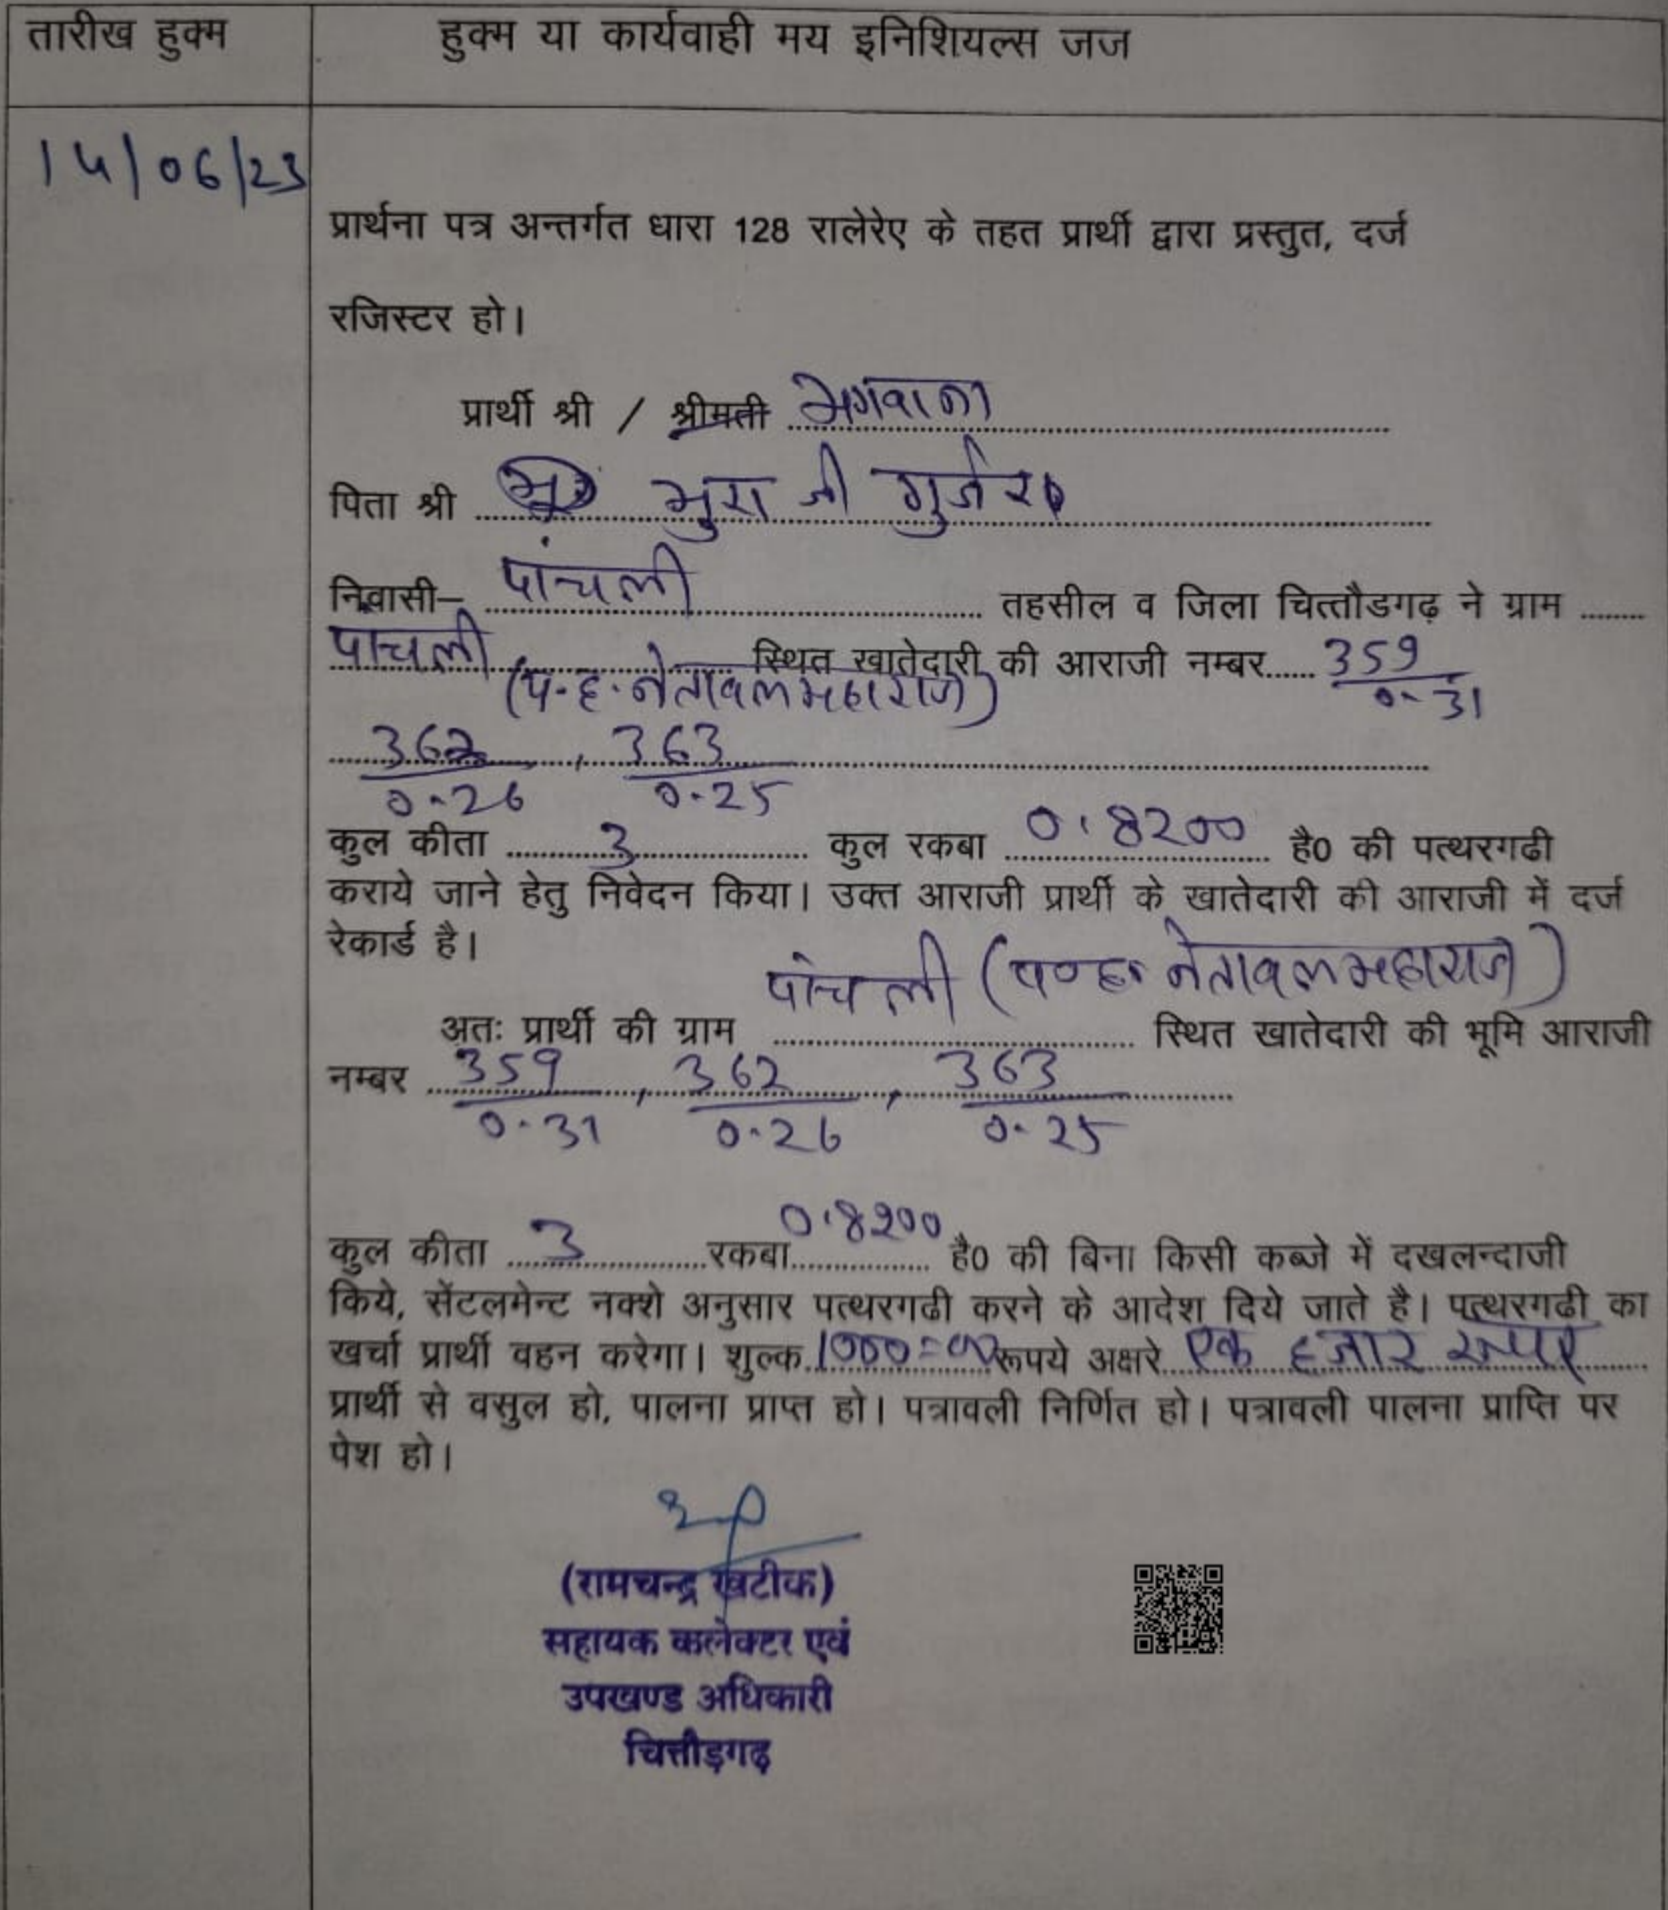 तारीख हुक्म
हुक्म या कार्यवाही मय इनिशियल्स जज
14/06/23
प्रार्थना पत्र अन्तर्गत धारा 128 रालेरेए के तहत प्रार्थी द्वारा प्रस्तुत, दर्ज
रजिस्टर हो।
प्रार्थी श्री / श्रीमती भगवाना
पिता श्री भुरा जी गुर्जर
निवासी– पांचली तहसील व जिला चित्तौडगढ़ ने ग्राम
पांचली स्थित खातेदारी की आराजी नम्बर 359
(प.ह. नेतावलमहाराज) 0-31
362, 363
0-26 0-25
कुल कीता 3 कुल रकबा 0.8200 है0 की पत्थरगढी
कराये जाने हेतु निवेदन किया। उक्त आराजी प्रार्थी के खातेदारी की आराजी में दर्ज
रेकार्ड है।
पांचली (प०ह० नेतावलमहाराज)
अतः प्रार्थी की ग्राम स्थित खातेदारी की भूमि आराजी
नम्बर 359, 362, 363
0-31 0-26 0-25
कुल कीता 3 रकबा 0.8200 है0 की बिना किसी कब्जे में दखलन्दाजी
किये, सेंटलमेन्ट नक्शे अनुसार पत्थरगढी करने के आदेश दिये जाते है। पत्थरगढी का
खर्चा प्रार्थी वहन करेगा। शुल्क 1000=00 रूपये अक्षरे एक हजार रूपए
प्रार्थी से वसुल हो, पालना प्राप्त हो। पत्रावली निर्णित हो। पत्रावली पालना प्राप्ति पर
पेश हो।
(रामचन्द्र खटीक)
सहायक कलेक्टर एवं
उपखण्ड अधिकारी
चित्तौड़गढ़